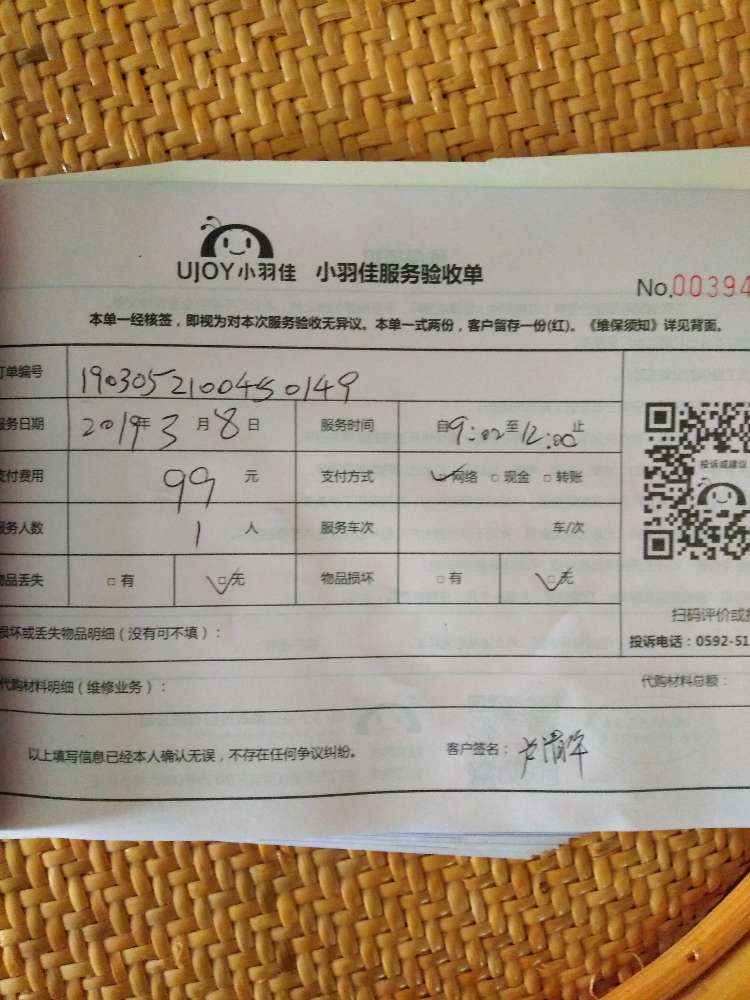 UJOY小羽佳 小羽佳服务验收单
No.00394
本单一经核签，即视为对本次服务验收无异议。本单一式两份，客户留存一份(红)。《维保须知》详见背面。
订单编号 1903052100450149
服务日期 2019年3月8日 服务时间 自9:00至12:00止
支付费用 99元 支付方式 ☑网络 □现金 □转账
服务人数 1人 服务车次 车/次
物品丢失 □有 ☑无 物品损坏 □有 ☑无
投诉或建议
扫码评价或投
投诉电话：0592-51
损坏或丢失物品明细（没有可不填）：
代购材料明细（维修业务）： 代购材料总额：
以上填写信息已经本人确认无误，不存在任何争议纠纷。 客户签名：